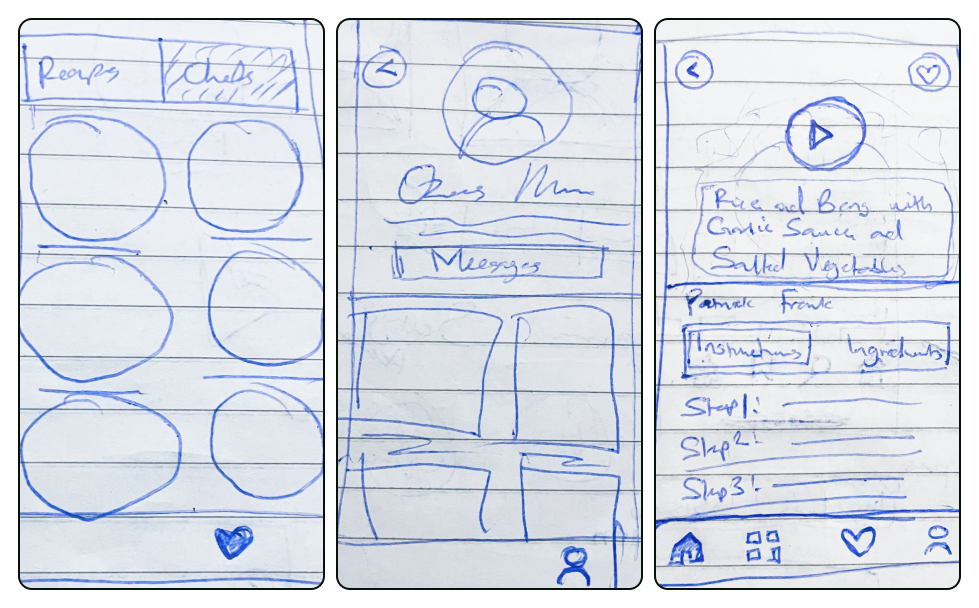 Recips
Chefs
Messages
Rice and Beans with
Garlic Sauce and
Salted Vegetables
Instructions
Ingredients
Step 1:
Step 2:
Step 3: